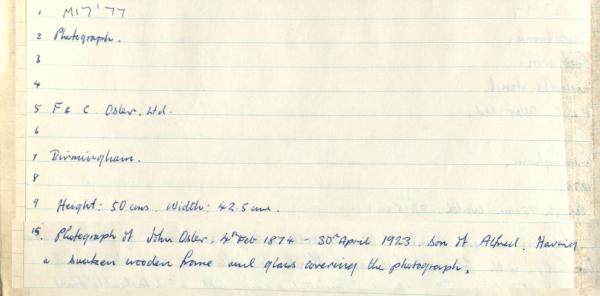 1 M17'77
2 Photograph.
3
4
5 F & C Osler. Ltd.
6
7 Birmingham.
8
9 Height: 50 cms. Width: 42.5 cms.
15. Photograph of John Osler. 4th Feb 1874 - 30th April 1923. Son of Alfred. Having
a sunken wooden frame and glass covering the photograph.